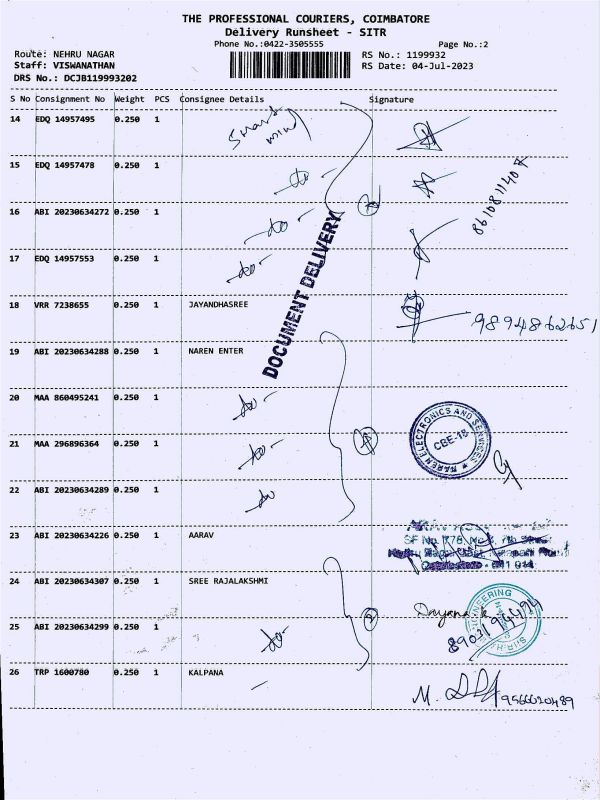 THE PROFESSIONAL COURIERS, COIMBATORE
Delivery Runsheet - SITR
Phone No.:0422-3505555 Page No.:2
Route: NEHRU NAGAR RS No.: 1199932
Staff: VISWANATHAN RS Date: 04-Jul-2023
DRS No.: DCJB119993202
S No Consignment No Weight PCS Consignee Details Signature
14 EDQ 14957495 0.250 1
15 EDQ 14957478 0.250 1 -do-
8610811407
16 ABI 20230634272 0.250 1 -do-
17 EDQ 14957553 0.250 1 -do-
DOCUMENT DELIVERY
18 VRR 7238655 0.250 1 JAYANDHASREE 9894862651
19 ABI 20230634288 0.250 1 NAREN ENTER
20 MAA 860495241 0.250 1 -do-
NAREN ELECTRONICS AND SERVICES
CBE-18
21 MAA 296896364 0.250 1 -do-
22 ABI 20230634289 0.250 1 -do
23 ABI 20230634226 0.250 1 AARAV
24 ABI 20230634307 0.250 1 SREE RAJALAKSHMI
Dayana.k
8903194494
25 ABI 20230634299 0.250 1 -do-
26 TRP 1600780 0.250 1 KALPANA
M. 9566620489